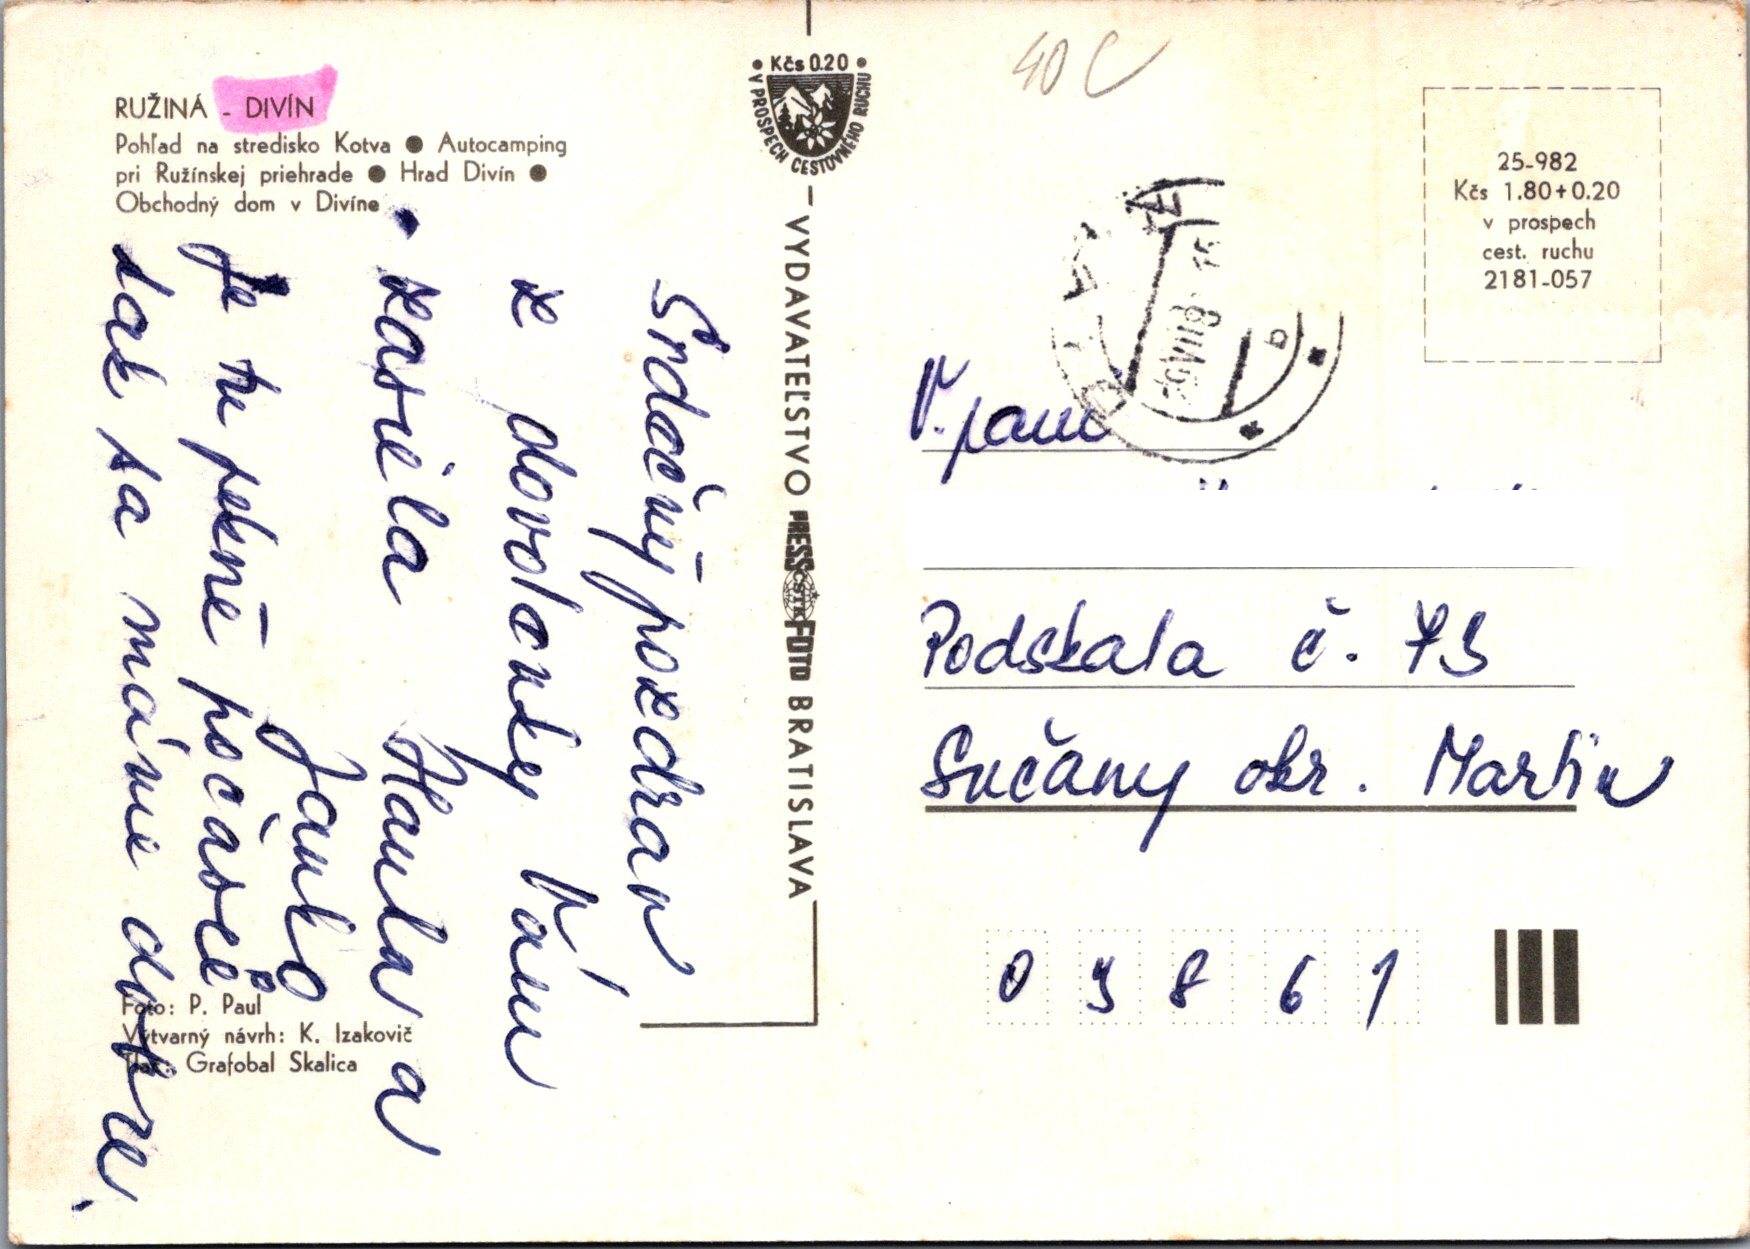 RUŽINÁ - DIVÍN
Pohľad na stredisko Kotva ● Autocamping
pri Ružínskej priehrade ● Hrad Divín ●
Obchodný dom v Divíne
Srdečný pozdrav
z dovolenky Vám
zasiela Hanka a
Janko
Je tu pekné počasie
tak sa máme dobre.
Foto: P. Paul
Výtvarný návrh: K. Izakovič
Grafobal Skalica
• Kčs 0.20 •
V PROSPECH CESTOVNÉHO RUCHU
VYDAVATEĽSTVO PRESSFOTO BRATISLAVA
ČSTK
40 C
25-982
Kčs 1.80+0.20
v prospech
cest. ruchu
2181-057
V. pani
Podskala č. 73
Sučany okr. Martin
0 3 8 6 1